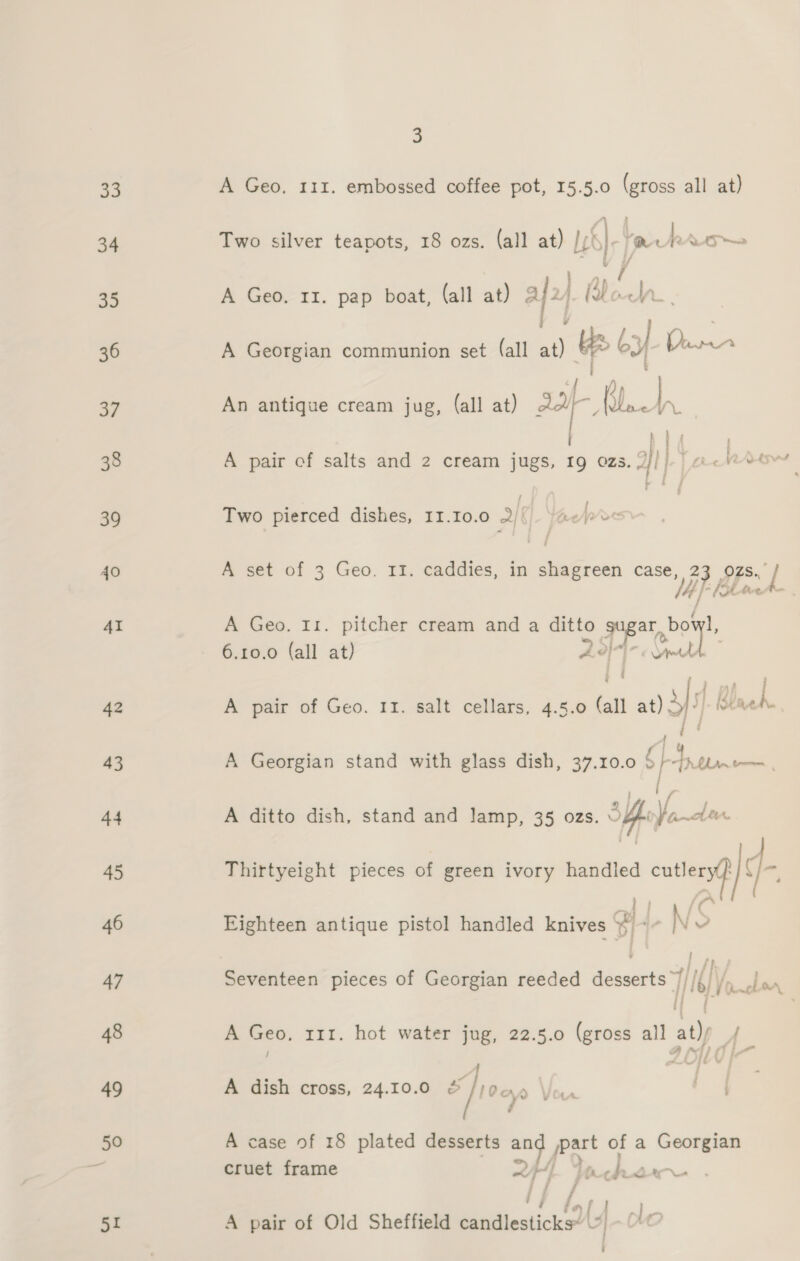 3
33 A Geo. III. embossed coffee pot, 15.5.0 (gross all at)
34 Two silver teapots, 18 ozs. (all at)
35 A Geo. II. pap boat, (all at) Bloch
36 A Georgian communion set (all at)
37 An antique cream jug, (all at) 22/- Bloch
38 A pair of salts and 2 cream jugs, 19 ozs.
39 Two pierced dishes, 11.10.0
40 A set of 3 Geo. II. caddies, in shagreen case, 23 ozs.
41 A Geo. II. pitcher cream and a ditto sugar bowl,
6.10.0 (all at)
42 A pair of Geo. II. salt cellars, 4.5.0 (all at)
43 A Georgian stand with glass dish, 37.10.0
44 A ditto dish, stand and lamp, 35 ozs.
45 Thirtyeight pieces of green ivory handled cutlery
46 Eighteen antique pistol handled knives NS
47 Seventeen pieces of Georgian reeded desserts
48 A Geo. III. hot water jug, 22.5.0 (gross all at)
49 A dish cross, 24.10.0
50 A case of 18 plated desserts and part of a Georgian
cruet frame
51 A pair of Old Sheffield candlesticks do